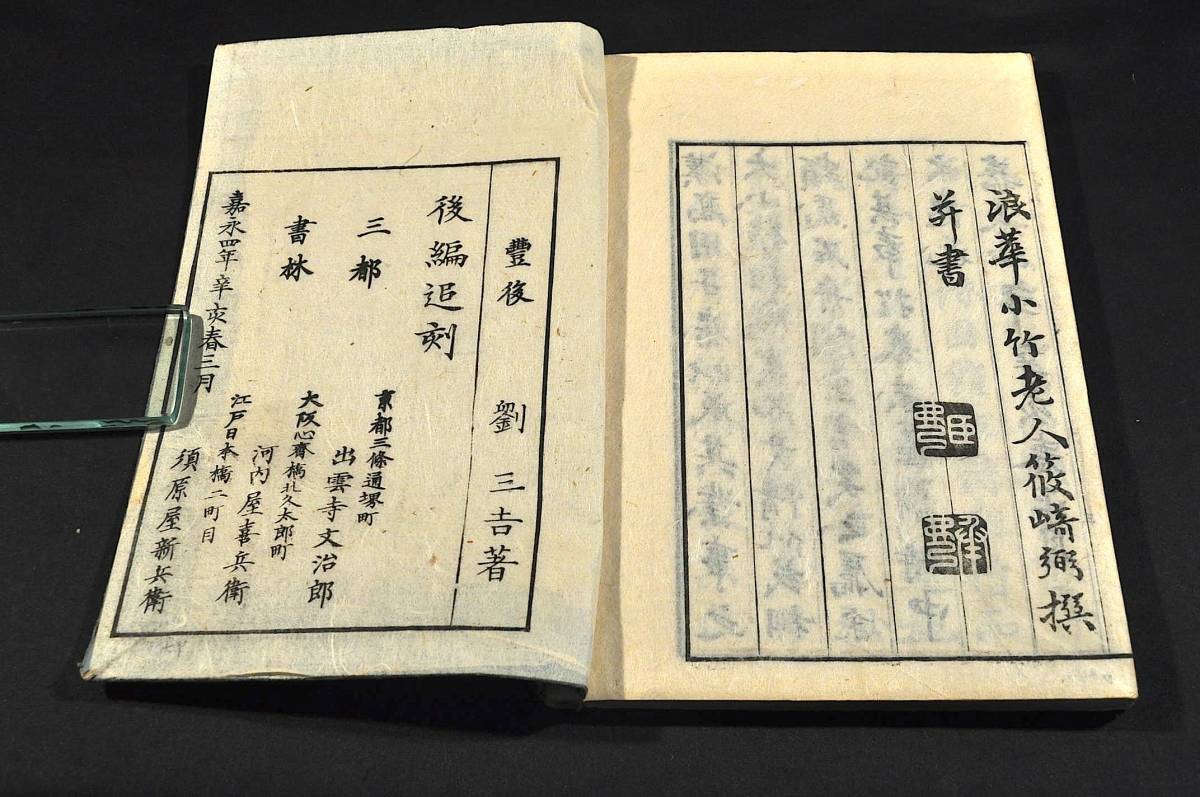 浪華小竹老人筱﨑弼撰
并書
豐後 劉三吉著
後編追刻
三都
書林
京都三條通堺町
出雲寺文治郎
大阪心齋橋北久太郎町
河内屋喜兵衛
江戸日本橋二町目
須原屋新兵衛
嘉永四年辛亥春三月